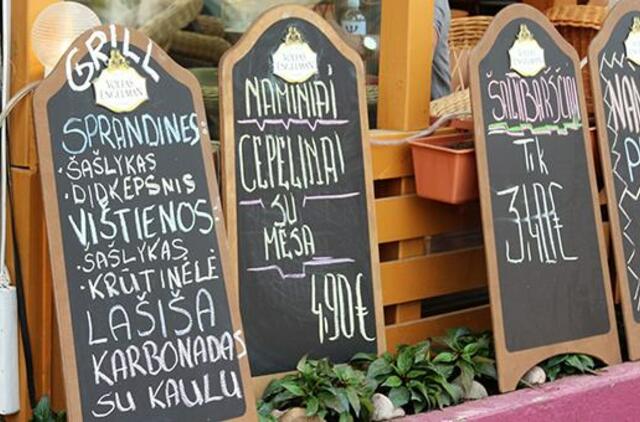 GRILL
VOLFAS
ENGELMAN
SPRANDINĖS:
• ŠAŠLYKAS
• DIDKEPSNIS
VIŠTIENOS:
• ŠAŠLYKAS
• KRŪTINĖLĖ
LAŠIŠA
KARBONADAS
SU KAULU
VOLFAS
ENGELMAN
NAMINIAI
CEPELINAI
SU
MĖSA
4,90€
VOLFAS
ENGELMAN
ŠALTIBARŠČIAI
TIK
3,40€